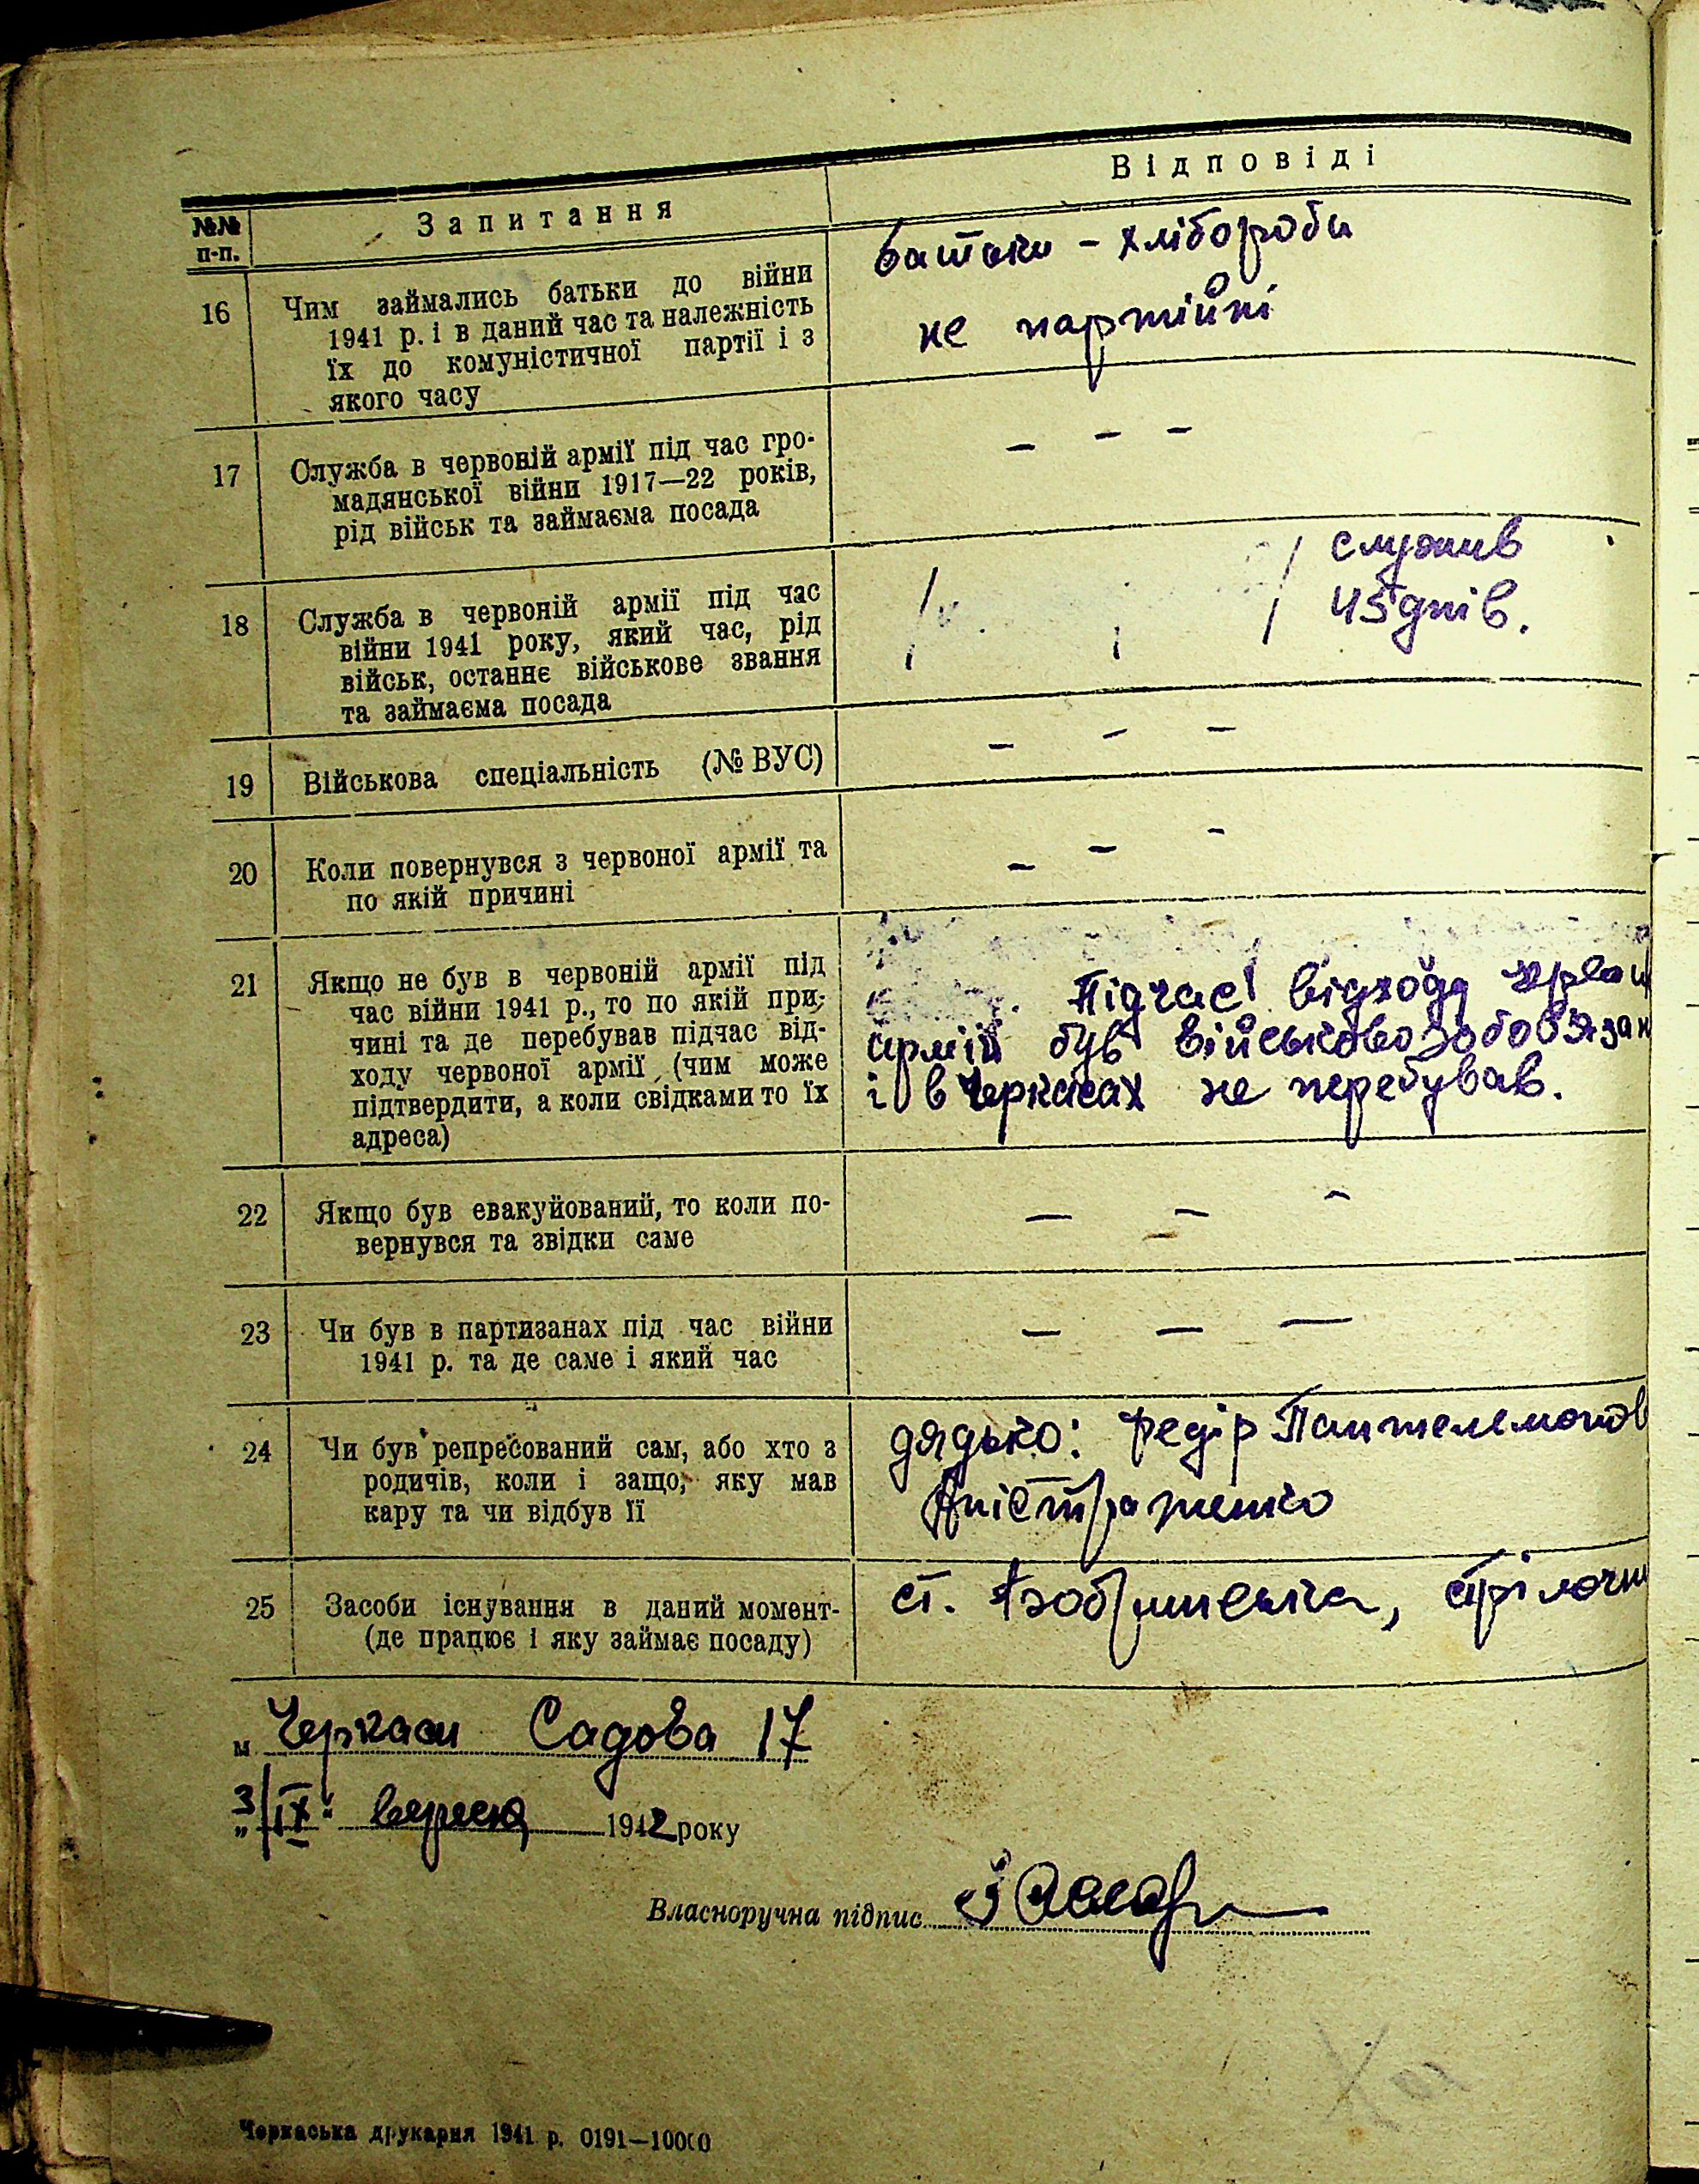 №№ п-п.
Запитання
Відповіді
16
Чим займались батьки до війни
1941 р. і в даний час та належність
їх до комуністичної партії і з
якого часу
батьки - хлібороби
не партійні
17
Служба в червоній армії під час гро-
мадянської війни 1917—22 років,
рід військ та займаєма посада
— — —
18
Служба в червоній армії під час
війни 1941 року, який час, рід
військ, останнє військове звання
та займаєма посада
служив
45 днів.
19
Військова спеціальність (№ ВУС)
— — —
20
Коли повернувся з червоної армії та
по якій причині
— — —
21
Якщо не був в червоній армії під
час війни 1941 р., то по якій при-
чині та де перебував підчас від-
ходу червоної армії (чим може
підтвердити, а коли свідками то їх
адреса)
Підчас відходу
армій був військовозобов'язан
і в Черкасах не перебував.
22
Якщо був евакуйований, то коли по-
вернувся та звідки саме
— — —
23
Чи був в партизанах під час війни
1941 р. та де саме і який час
— — —
24
Чи був репресований сам, або хто з
родичів, коли і защо, яку мав
кару та чи відбув її
дядько: Федір Пантелемонов
Аністратенко
25
Засоби існування в даний момент-
(де працює і яку займає посаду)
ст.
м. Черкаси Садова 17
„3/IX“ 1942 року
Власноручна підпис
Черкаська друкарня 1941 р. 0191—10000